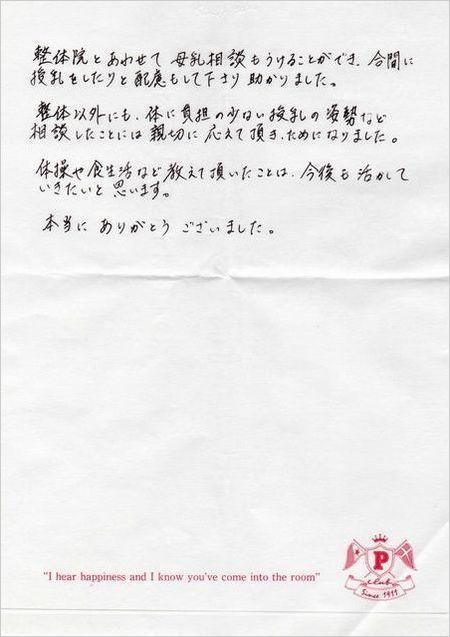 整体院とあわせて 母乳相談もうけることができ、合間に
授乳をしたりと配慮もして下さり 助かりました。
整体以外にも、体に負担の少ない授乳の姿勢など
相談したことには親切に応えて頂き、ためになりました。
体操や食生活など教えて頂いたことは、今後も活かして
いきたいと思います。
本当に ありがとう ございました。
P
club
Since 1911
"I hear happiness and I know you've come into the room"